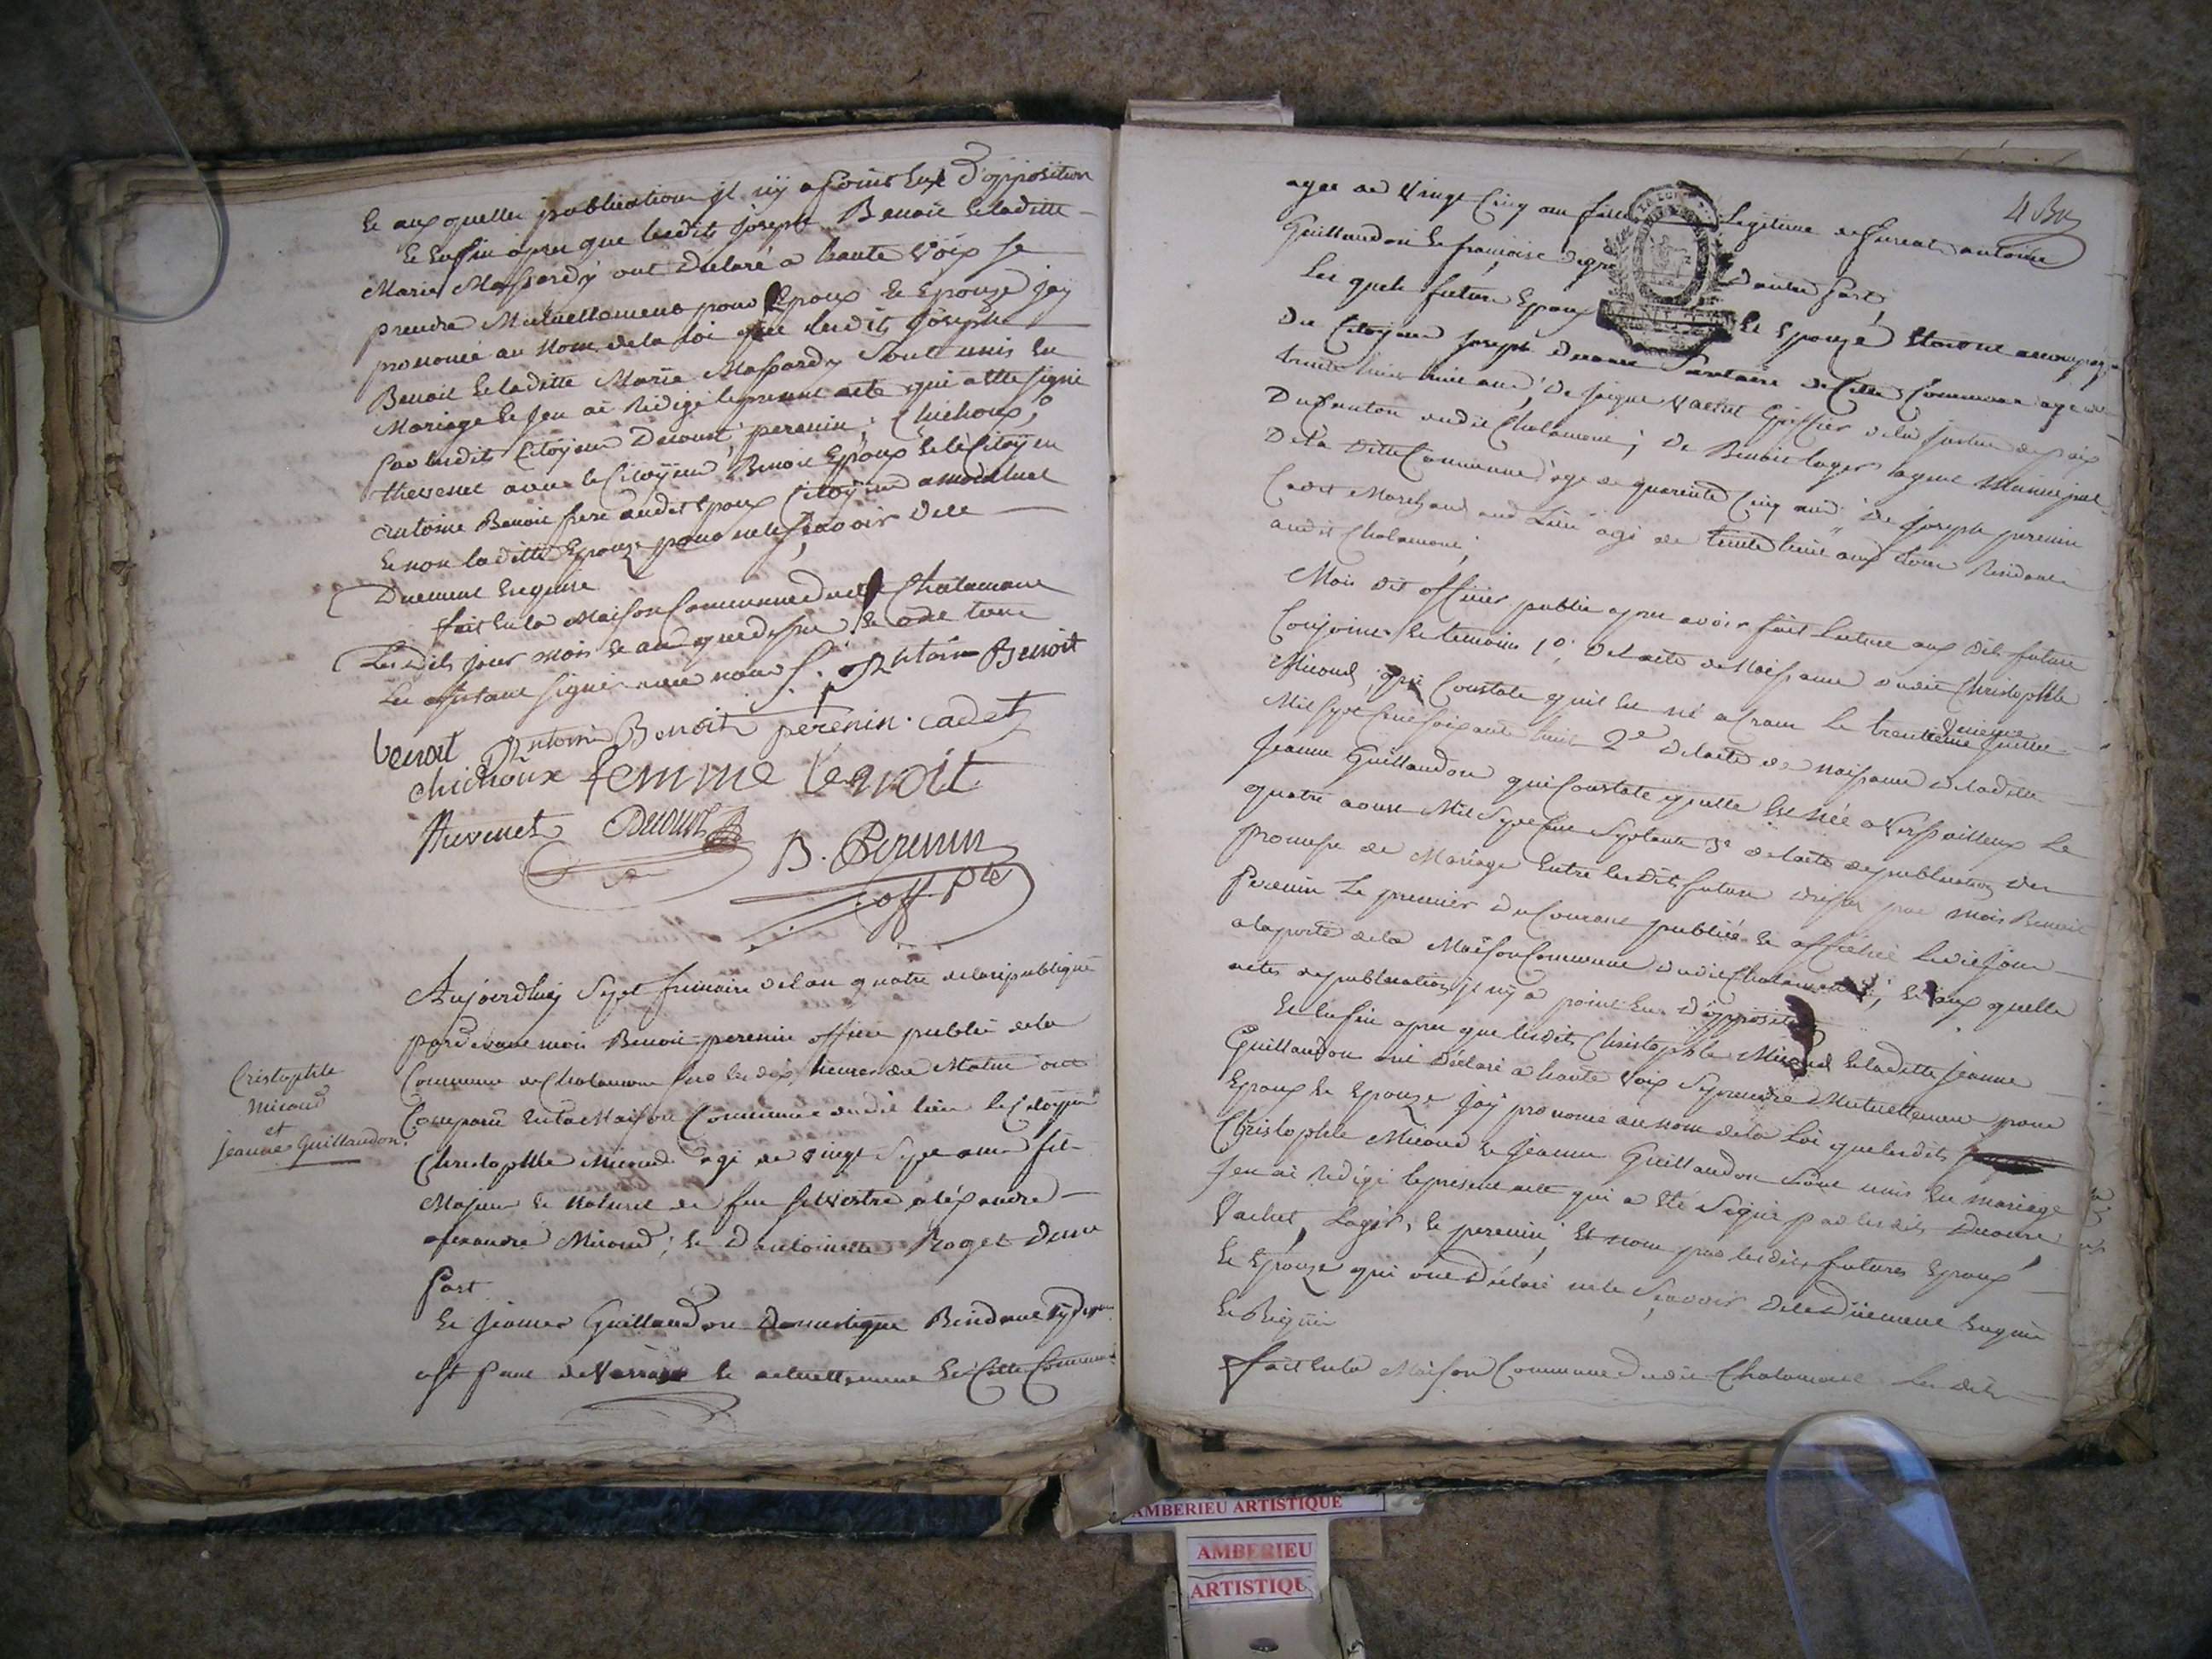 Et aux quelles publications il n'y a point eut d'opposition
Et Enfin apres que lesdits Joseph Benoit & laditte
Marie Massardy ont declaré a haute Voix se
prendre Mutuellement pour Epoux & Epouze jay
prononcé au Nom de la loi que lesdits Joseph
Benoit & laditte Marie Massardy Sont unis En
Mariage & Jen ai Redigé le present acte qui a ette signé
par lesdits Citoyens Decourt, perenin, Chichoux,
thevenet avec le Citoyen Benoit Epoux & le Citoyen
antoine Benoit frere audit Epoux Citoyen
& non laditte Epouze pour ne le sçavoir de ce
Duement Enquise
fait En la Maison Commune dudit Chalamont
Lesdits jour mois & an que dessus, &
Les assistant signé avec nous Antoine Benoit
benoit Antoine Benoit perenin cadet
chichoux femme benoit
thevenet Decourt
B. Perenin
off. plc
Aujourdhuy Sept frimaire de l'an quatre de la republique
pardevant moi Benoit perenin officier public de la
Commune de Chalamont Sur les dix heures du Matin ont
Comparu En la Maison Commune dudit lieu le Citoyen
Christophle Micoud agé de vingt Sept ans fils
Majeur & Naturel de feu Silvestre aléxandre
Micoud, & Dantoinette Roget Dune
Part
Et Jeanne Guillaudon Domestique Residant
& actuellement En Cette Commune
Cristophle
micoud
et
jeanne Guillaudon.
4
agee de Vingt Cinq ans fille Legitime de antoine
Guillaudon & francoise Dautre Part,
Les quels futurs Epoux Et Epouzé Etoient accompagné
Du Citoyen Joseph Decourt de Cette Commune agé de
trente huit ans, De Vachet Greffier de la justice de paix
Du Canton dudit Chalamont, De Benoit Lager agent Municipal
De la ditte Commune agé de quarente Cinq ans, De Joseph perenin
Cadet Marchand aud. Lieu agé de trente huit ans Residant
audit Chalamont,
Moi dit officier public apres avoir fait lecture aux dits futurs
Conjoints & temoins 1° De l'acte de Naissance dudit Christophle
Micoud, qui Constate quil Est né a Crans Le Juillet
Mil Sept Cent Soixante huit 2e De l'acte de naissance de laditte
Jeanne Guillaudon qui Constate quelle Est née a Versailleux Le
quatre aoust Mil Sept Cent Septante 3e de l'acte de publication Des
promesse de Mariage Entre lesdits futurs dressé par Moi Benoit
Perenin Le premier du Courant publié & affiché Ledit jour
a la porte de la Maison Commune dudit Chalamont, & aux quelle
actes de publication il n'y a point Eu D'opposition
Et Enfin apres que lesdits Christophle Micoud & laditte Jeanne
Guillaudon ont Déclaré a haute Voix Se prendre Mutuellement pour
Epoux & Epouze Jay prononcé au nom de la Loi que lesdits
Christophle Micoud & Jeanne Guillaudon Sont unis En mariage
Jen ai Redigé le present acte qui a Eté Signé par lesdits Decourt
Vachet, Lager, & perenin, Et nom par lesdits futures Epoux
& Epouze qui ont Déclaré ne le Sçavoir De ce Duement Enquis
& Requis
fait En la Maison Commune Dudit Chalamont Les Dits
AMBERIEU ARTISTIQUE
AMBERIEU
ARTISTIQU